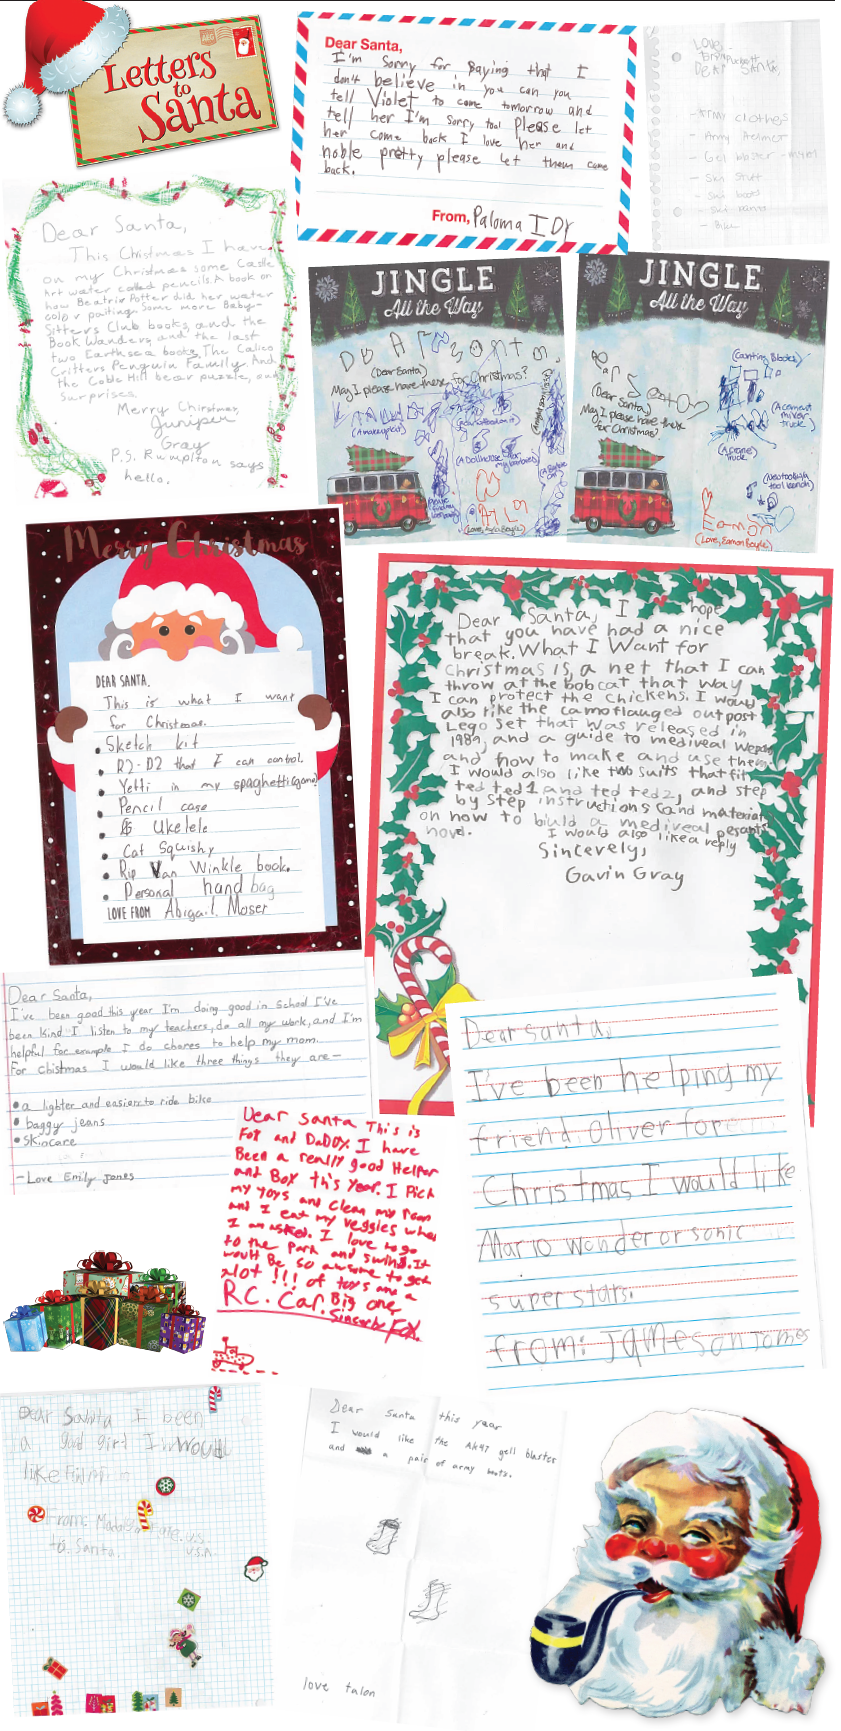 Letters
to
Santa
Dear Santa,
I'm sorry for saying that I
don't believe in you can you
tell Violet to come tomorrow and
tell her I'm sorry too! Please let
her come back I love her and
noble pretty please let them come
back.
From, Paloma
Love -
DEAR SANTA,
- Army clothes
- Army Helmet
- Gel blaster -
- Skin stuff
Dear Santa,
This Christmas I have
on my Christmas some Castle
Art water colled pencils. A book on
how Beatrix Potter did her water
color paiting. Some more Baby-
Sitters Club books, and the
Book Wanders, and the last
two Earthsea books, The Calico
Critters Penguin Family. And
the Coble Hill bear puzzle, and
surprises.
Merry Christmas,
Juniper
Gray
P.S. Rumplton says
hello.
JINGLE
All the Way
(Dear Santa)
May I please have these for Christmas?
(A Dollhouse for my barbies)
JINGLE
All the Way
(Dear Santa)
May I please have these
for Christmas?
(Counting Blocks)
(A cement
mixer
truck)
(A crane
truck)
Eamon
(Love, Eamon Boyle)
Merry Christmas
DEAR SANTA,
This is what I want
for Christmas.
• Sketch kit
• R2-D2 that I can control.
• Yetti in my spaghetti(game)
• Pencil case
• Ukelele
• Cat Squishy
• Rip Van Winkle book.
• Personal hand bag
LOVE FROM Abigail Moser
Dear Santa, I hope
that you have had a nice
break. What I Want for
Christmas is, a net that I can
throw at the bobcat that way
I can protect the chickens. I would
also like the camoflauged outpost
Lego set that was released in
1989, and a guide to mediveal weapons
and how to make and use them.
I would also like two suits that fit
ted ted 1 and ted ted 2, and step
by step instructions (and materials)
on how to biuld a mediveal pesants
hovel. I would also like a reply
Sincerely,
Gavin Gray
Dear Santa,
I've been good this year I'm doing good in school I've
been kind I listen to my teachers, do all my work, and I'm
helpful for example I do chores to help my mom.
For chistmas I would like three things they are—
• a lighter and easier to ride bike
• baggy jeans
• skincare
—Love Emily Jones
Dear Santa This is
Fox and Daddy. I have
Been a really good Helper
and Boy this Year. I Pick
my toys and clean my room
and I eat my veggies when
I am asked. I love to go
to the Park and swing. It
would Be so awsome to get
Alot !!! of toys and a
R.C. Car. Big one
Sincerely Fox
Dear santa,
I've been helping my
friend Oliver for
Christmas I would like
Mario wonder or sonic
superstars.
from: Jameson Jones
Dear Santa I been
a good girl I Would
like
From: U.S.
To: Santa. U.S.A.
Dear Santa this year
I would like the AK47 gell blaster
and a pair of army boots.
love talon